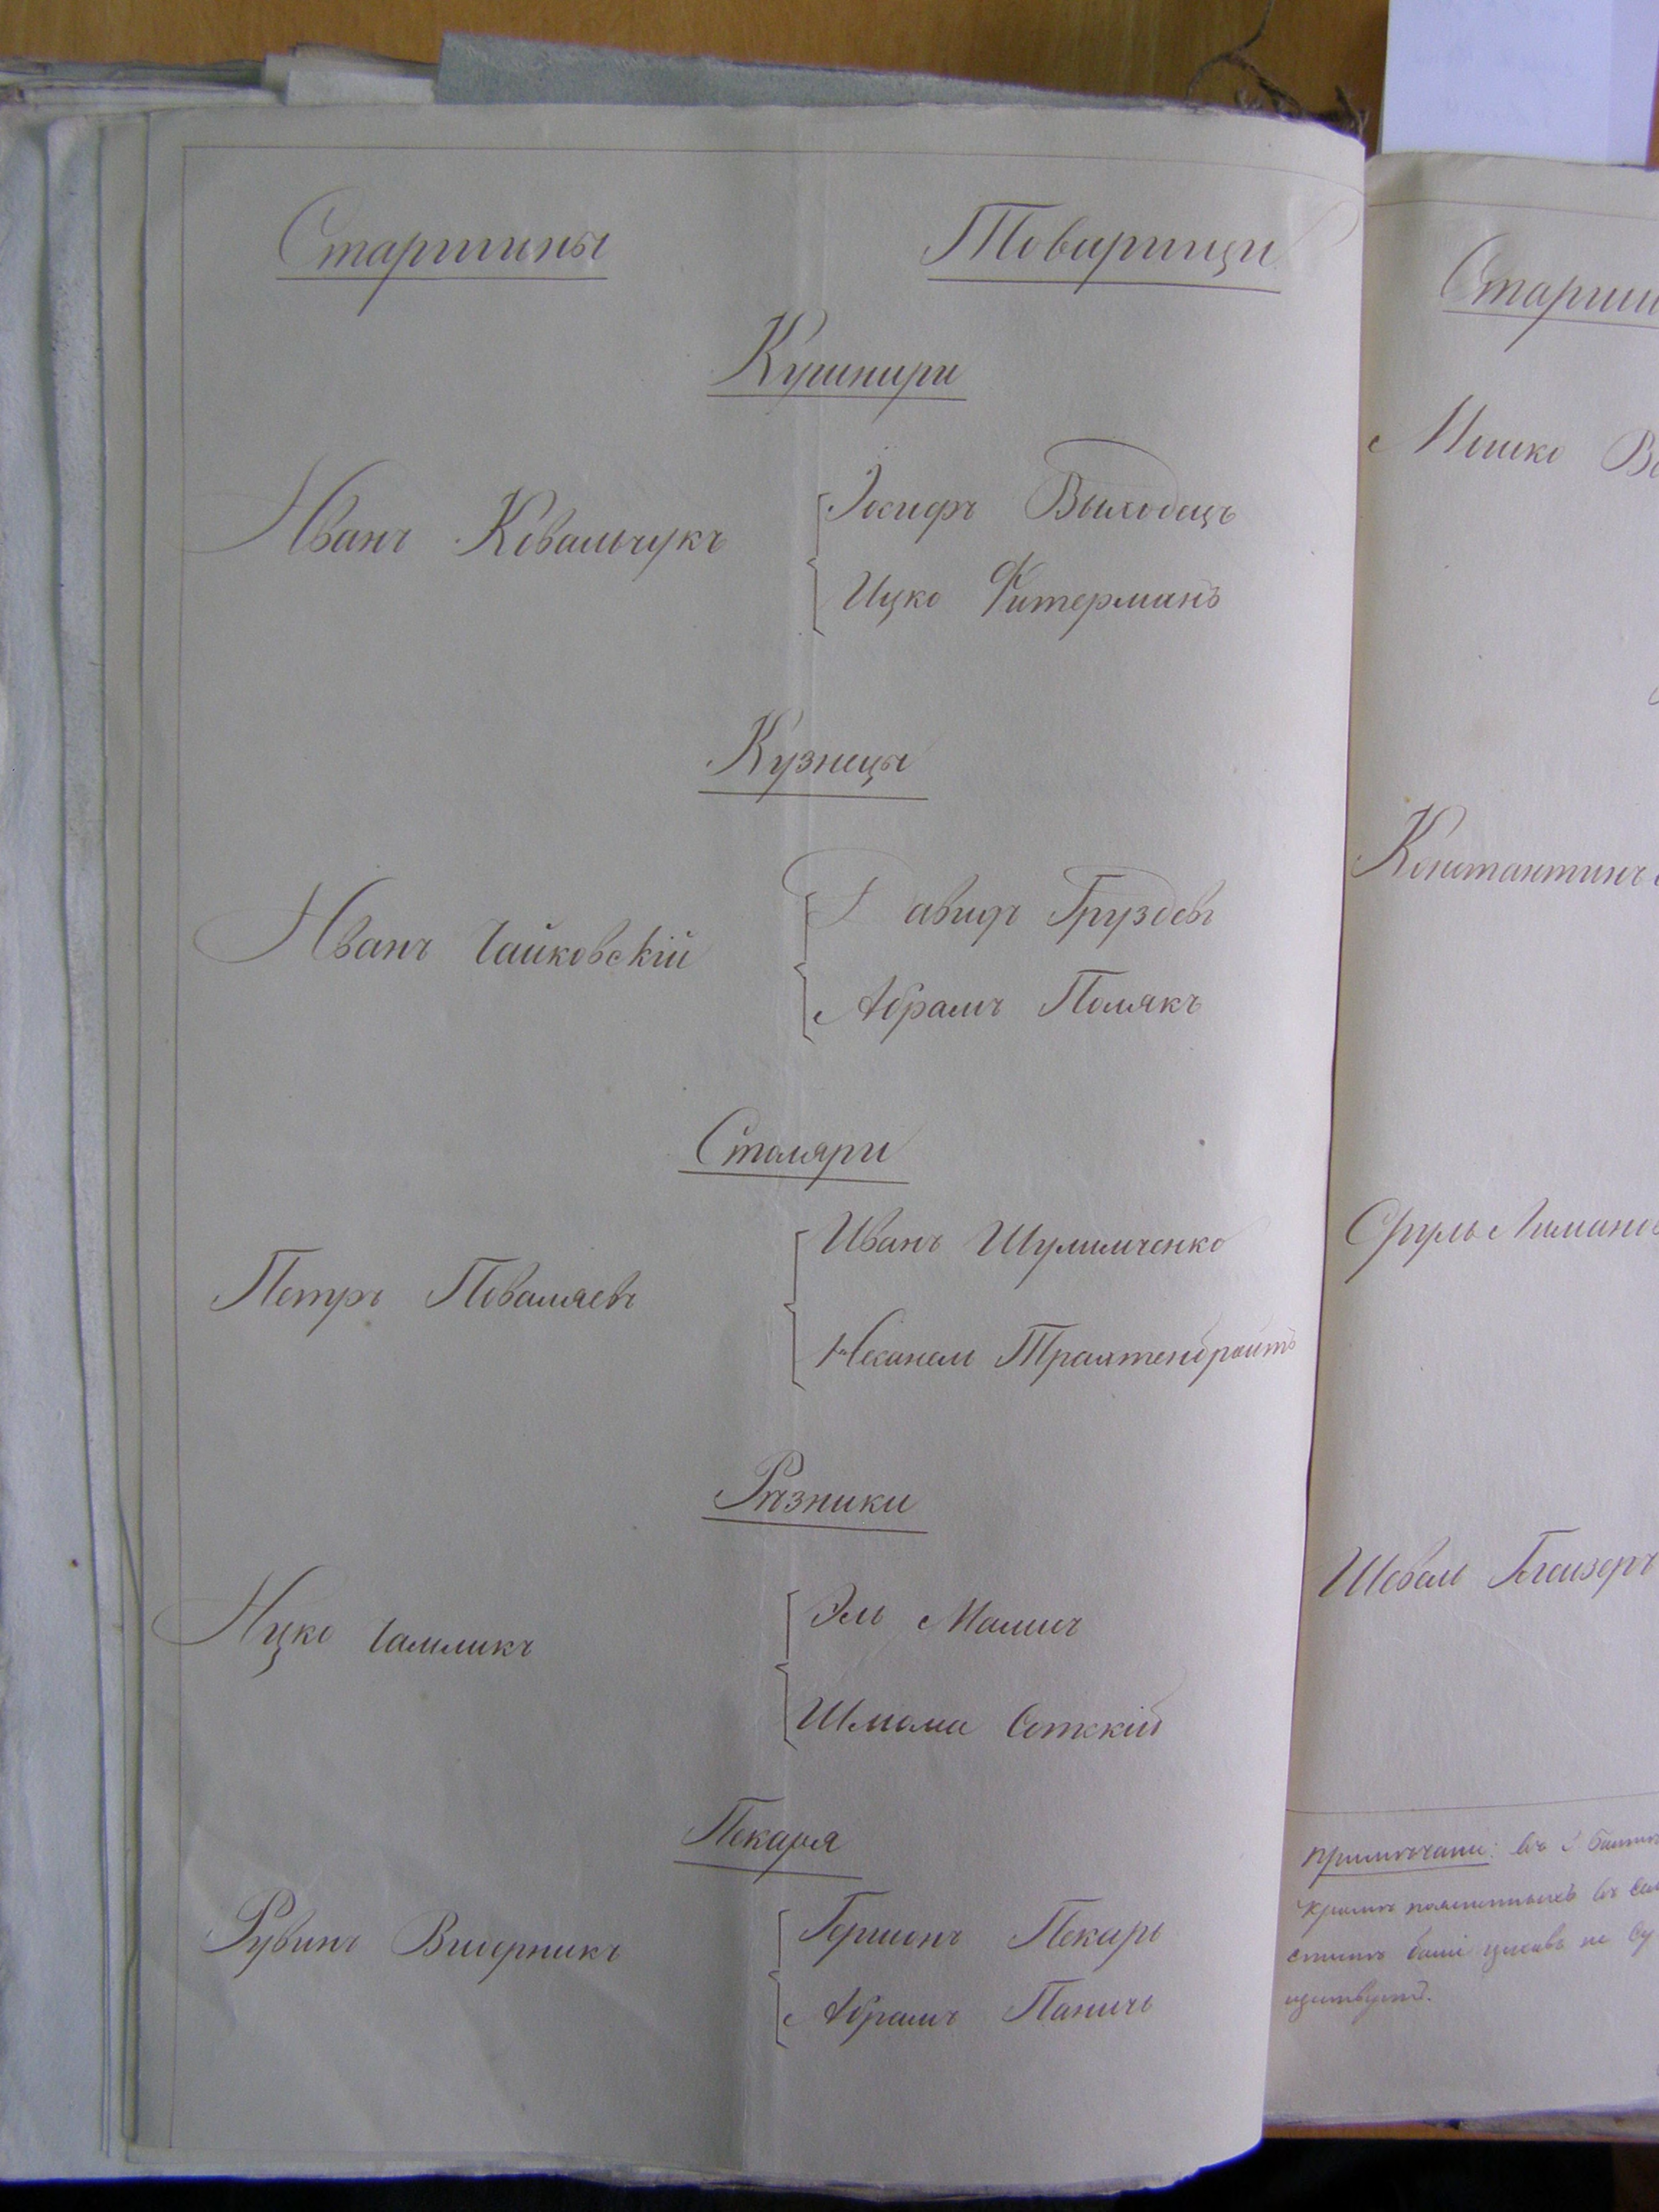 Старшины Товарищи
Кушнири
Иванъ Ковальчукъ
Іосифъ Выходецъ
Ицко Фитерманъ
Кузнецы
Иванъ Чайковскій
Давидъ Груздевъ
Абрамъ Полякъ
Столяри
Петръ Поваляевъ
Иванъ Шулимченко
Трахтенбройтъ
Рѣзники
Ицко Чамликъ
Эль Малишъ
Шлома Сотскій
Пекаря
Рувинъ
Гершонъ Пекарь
Абрамъ Паничь
Старши
Мошко
Константинъ
Сруль
Шевель Глейзеръ
Примѣчаніе: Въ г. Балтѣ
Кромѣ
цеховъ не су
ществуетъ.